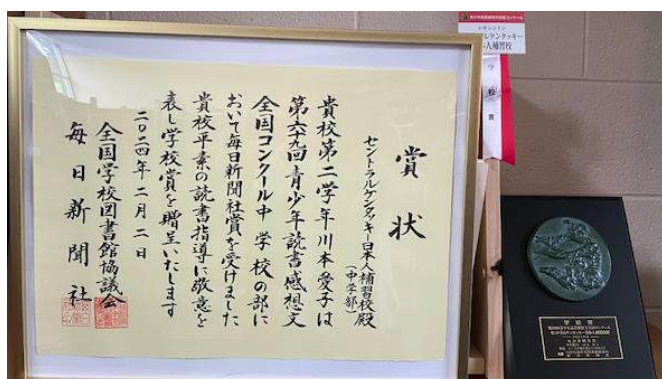 賞状
セントラルケンタッキー日本人補習校殿
（中学部）
貴校第二学年川本愛子は
第六九回青少年読書感想文
全国コンクール中学校の部に
おいて毎日新聞社賞を受けました
貴校平素の読書指導に敬意を
表し学校賞を贈呈いたします
二〇二四年二月二日
全国学校図書館協議会
毎日新聞社
レキシントン
学校賞
学校賞